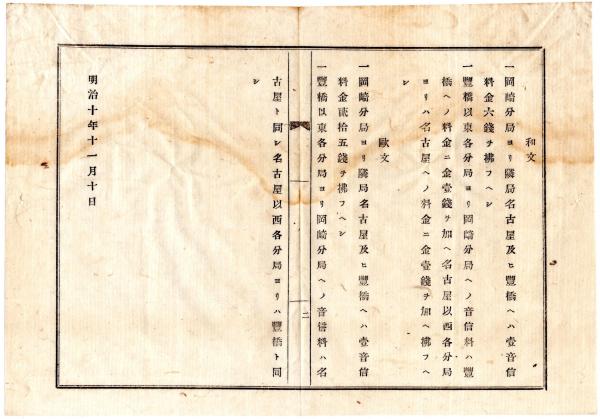 和文
一岡崎分局ヨリ隣局名古屋及ヒ豐橋ヘハ壹音信
料金六錢ヲ拂フヘシ
一豐橋以東各分局ヨリ岡崎分局ヘノ音信料ハ豐
橋ヘノ料金ニ金壹錢ヲ加ヘ名古屋以西各分局
ヨリハ名古屋ヘノ料金ニ金壹錢ヲ加ヘ拂フヘ
シ
歐文
一岡崎分局ヨリ隣局名古屋及ヒ豐橋ヘハ壹音信
料金貳拾五錢ヲ拂フヘシ
一豐橋以東各分局ヨリ岡崎分局ヘノ音信料ハ名
二
古屋ト同シ名古屋以西各分局ヨリハ豐橋ト同
シ
明治十年十一月十日